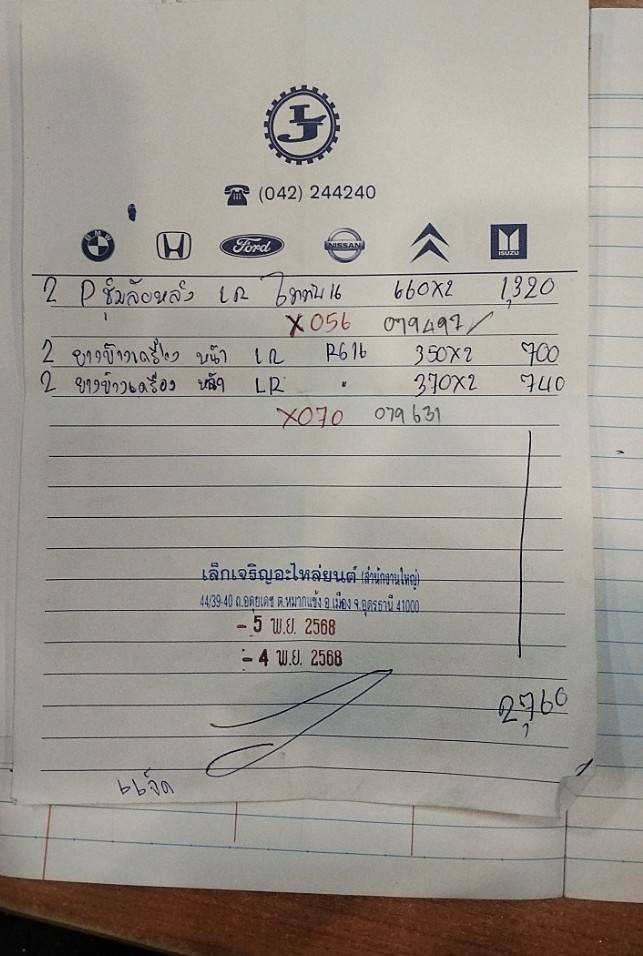 LJ
(042) 244240
BMW Ford NISSAN ISUZU
2 P ซุ้มล้อหลัง LR 660X2 1,320
X056 079497/
2 ยางข้างเครื่อง หน้า LR R616 350X2 700
2 ยางข้างเครื่อง หลัง LR " 370X2 740
X070 079631
เล็กเจริญอะไหล่ยนต์ (สำนักงานใหญ่)
44/39-40 ถ.อดุยเดช ต.หมากแข้ง อ.เมือง จ.อุดรธานี 41000
- 5 พ.ย. 2568
- 4 พ.ย. 2568
2,760